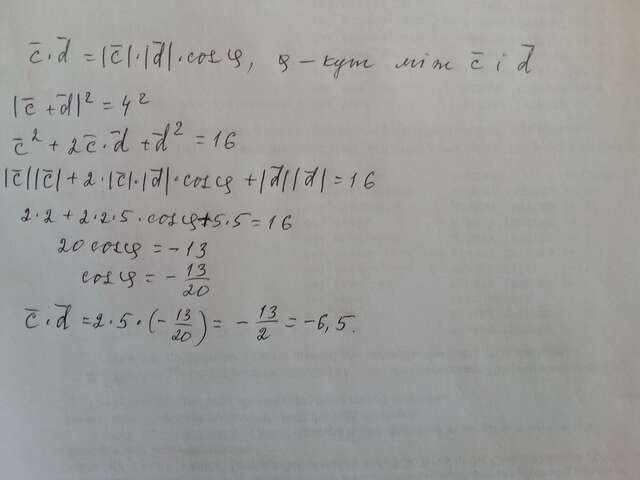 c̄·d̄ = |c̄|·|d̄|·cosφ, φ – кут між c̄ і d̄
|c̄ + d̄|² = 4²
c̄² + 2c̄·d̄ + d̄² = 16
|c̄||c̄| + 2·|c̄|·|d̄|·cosφ + |d̄||d̄| = 16
2·2 + 2·2·5·cosφ + 5·5 = 16
20cosφ = –13
cosφ = – 13/20
c̄·d̄ = 2·5·(– 13/20) = – 13/2 = –6,5.